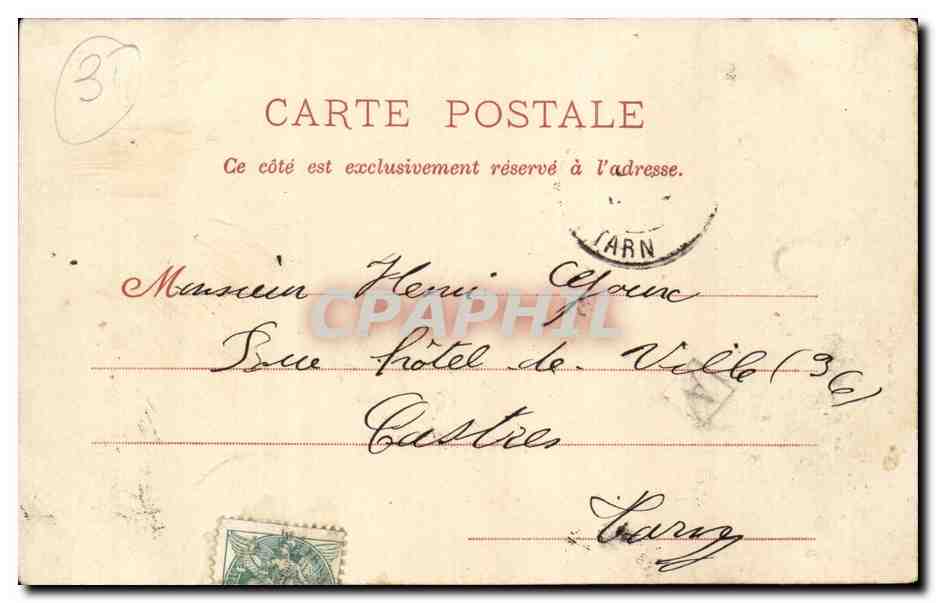 3
CARTE POSTALE
Ce côté est exclusivement réservé à l'adresse.
TARN
Monsieur Henri
CPAPHIL
Rue hôtel de Ville (36)
Castres
Tarn